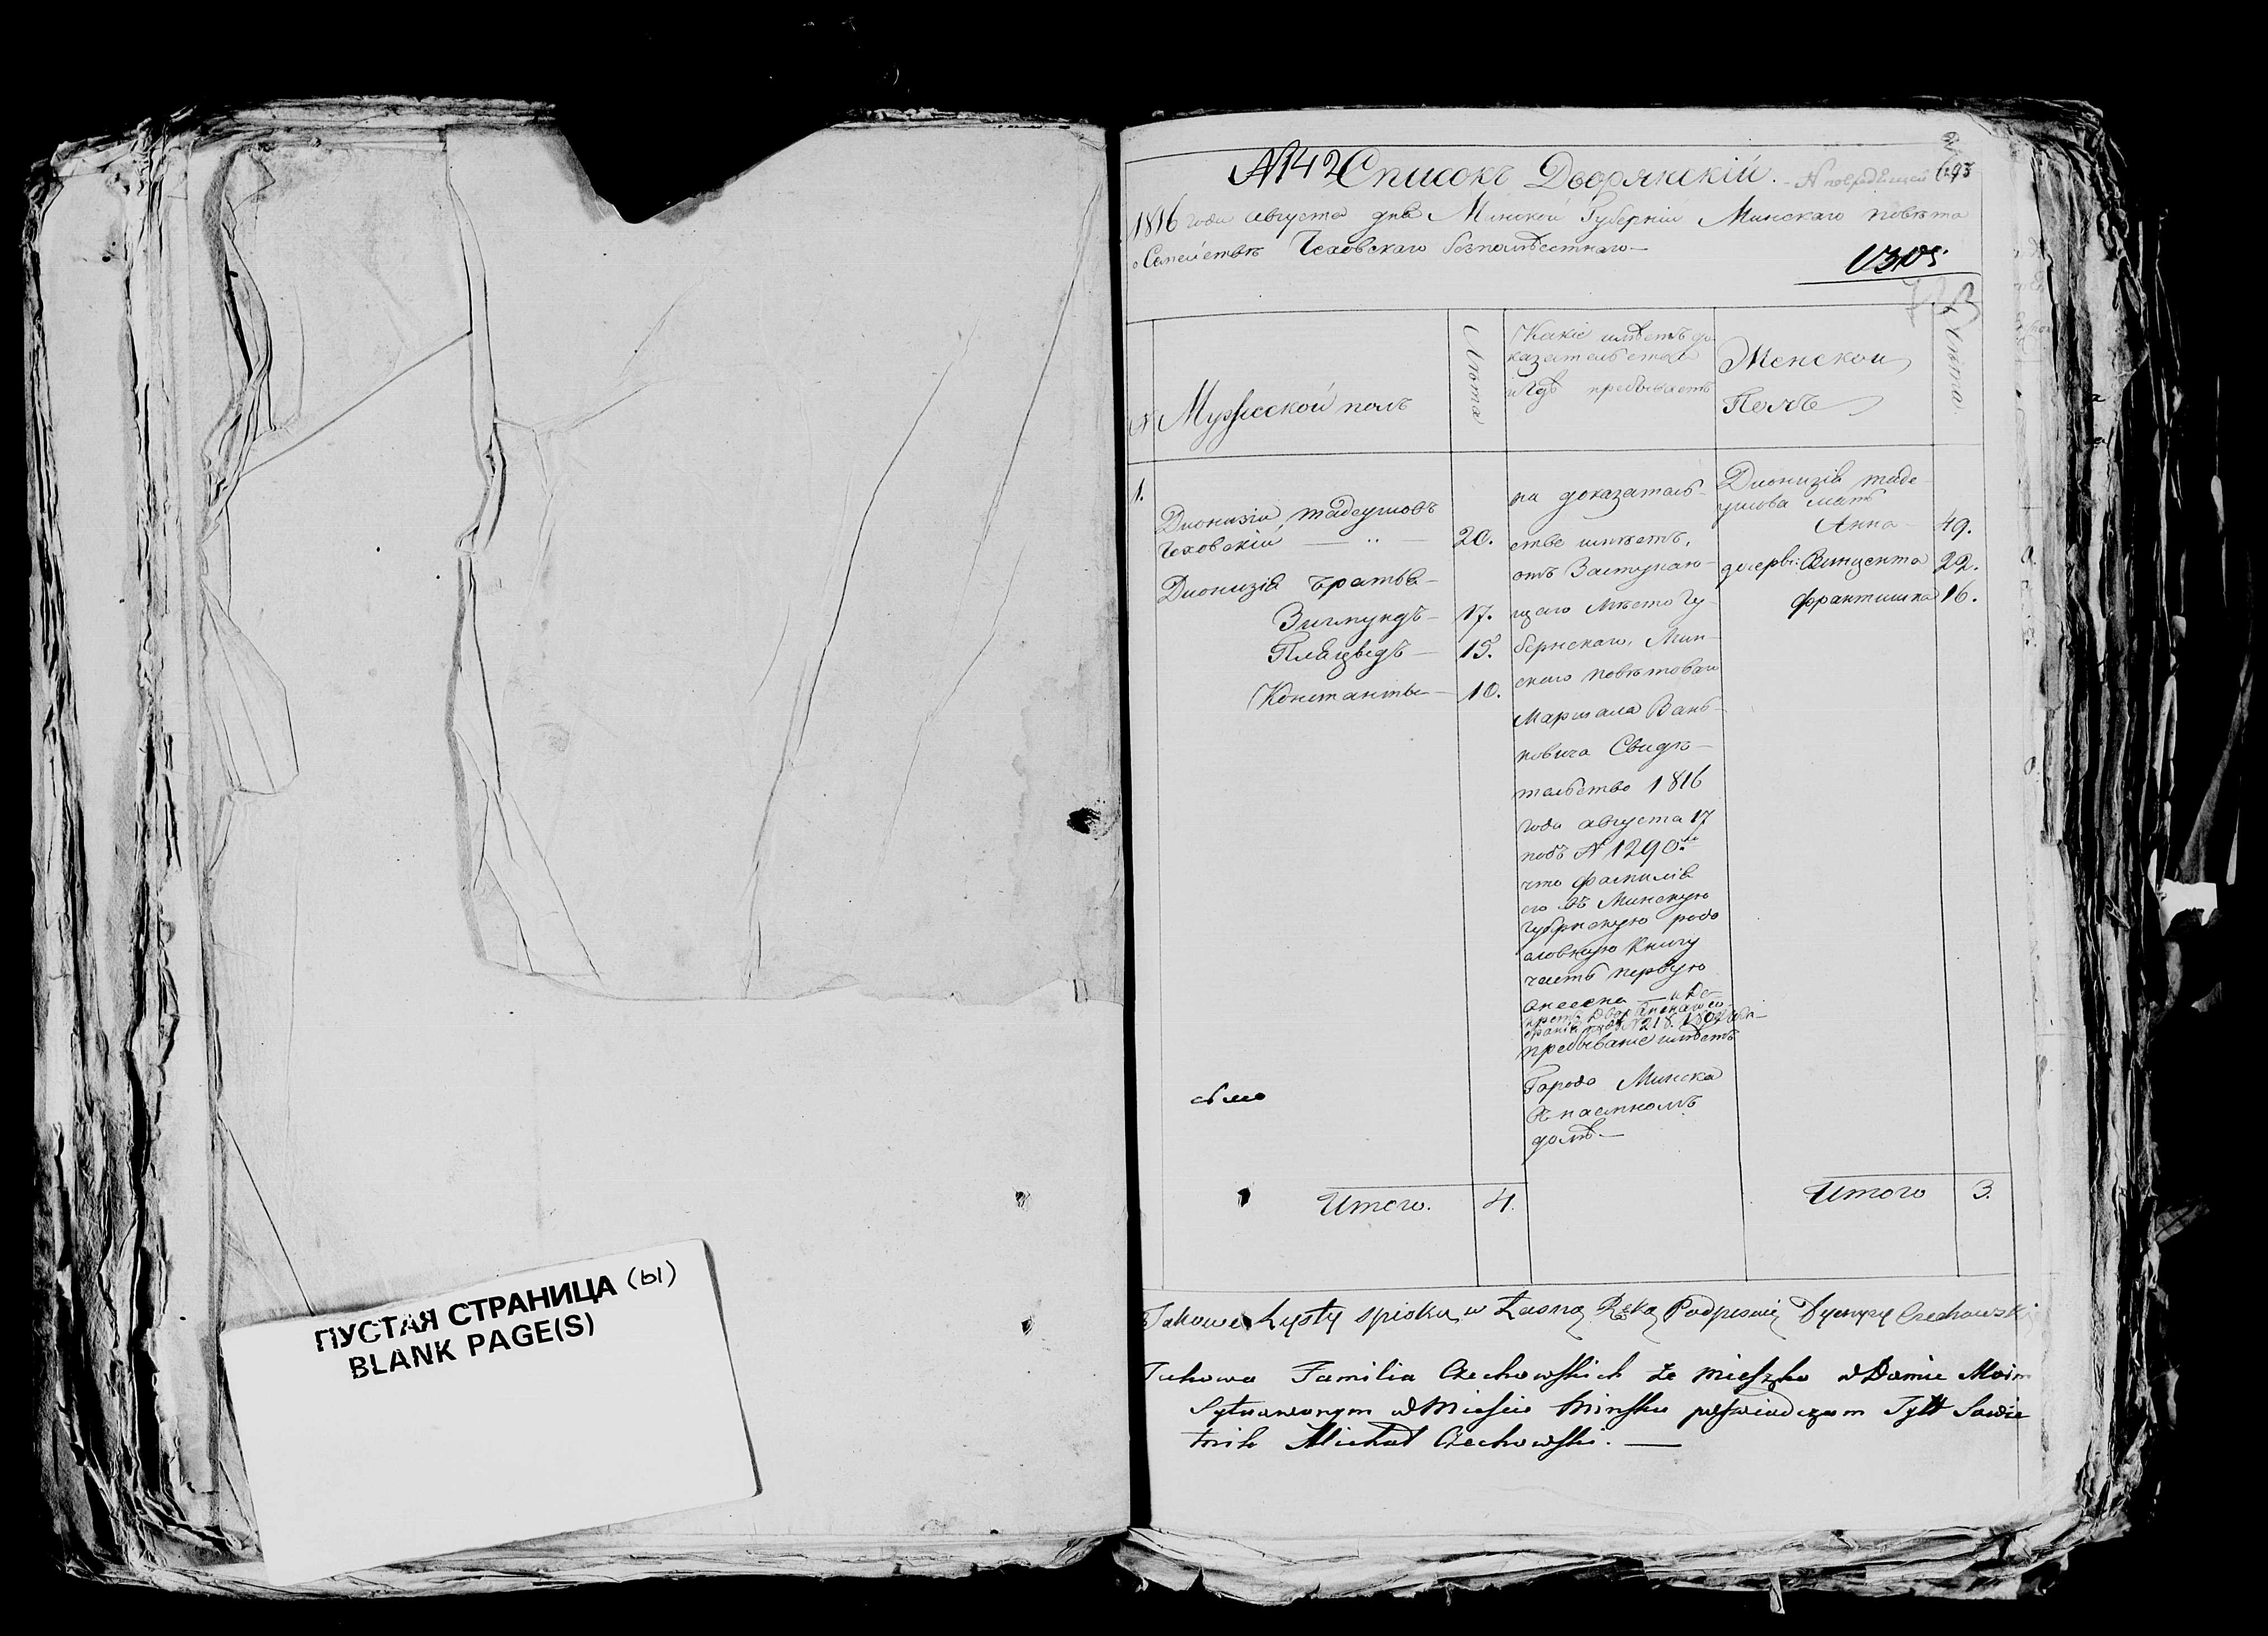 ПУСТАЯ СТРАНИЦА (ы)
BLANK PAGE(S)
№ 142 Списокъ Дворянскій.
693
1816 года августа дня Минской Губерніи Минскаго повѣта
о Семействѣ Чеховскаго безпомѣстнаго—
№ Мужеской полъ
Лѣта
Какіе имѣетъ до-
казательства
и гдѣ пребываетъ
Женской
Полъ
Лѣта
1.
Дионизій Тадеушовъ
Чеховскій — „ — 20.
Дионизія братья—
Зигмундъ— 17.
Плацыдъ— 15.
Константы— 10.
на доказатель-
стве имѣетъ,
отъ Заступаю-
щаго мѣсто Гу-
бернскаго, Мин-
скаго повѣтоваго
Маршала Вань-
ковича Свидѣ-
тельство 1816
года августа 17
подъ № 1290.
что фамилія
его въ Минскую
Губернскую родо
словную Книгу
часть первую
внесена —
пребываніе имѣетъ
Города Минска
домѣ—
Дионизія Таде
ушова мать
Анна— 49.
дочери: Винцента 22.
Франтишка 16.
Итого. 4.
Итого 3.
Takowe Lysty spisku własną Ręką Podpisuię Dyonizy Czechowski
Takowa Familia Czechowskich że mieszka w Domie Moim
Sytuowanym w Mieście Mińsku poświadczam Tytt Sowie
tnik Michał Czechowski. —